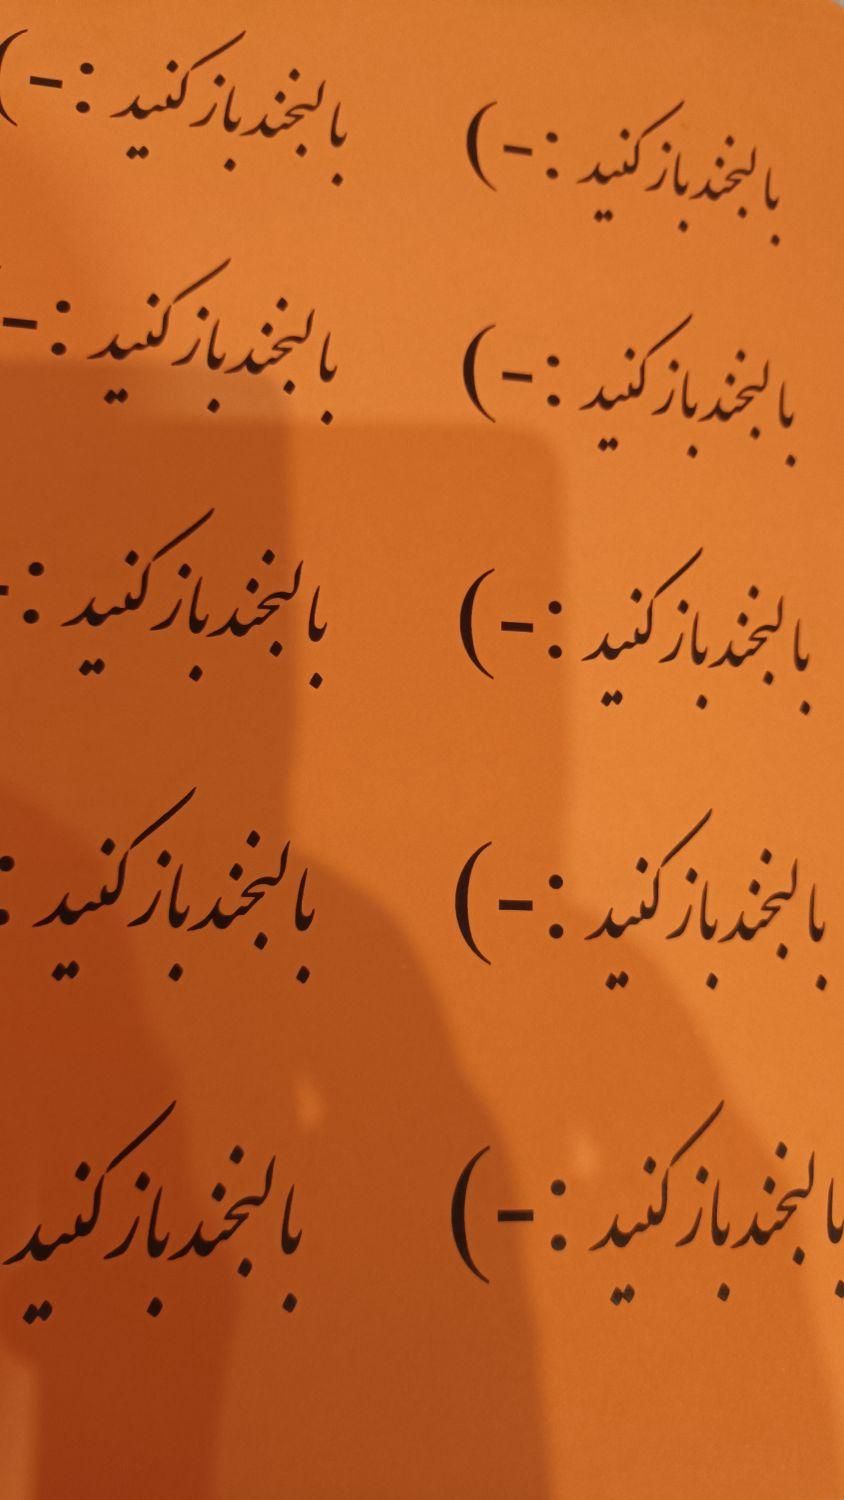 با لبخند باز کنید :-)
با لبخند باز کنید :-)
با لبخند باز کنید :-)
با لبخند باز کنید :-
با لبخند باز کنید :-)
با لبخند باز کنید :-
با لبخند باز کنید :-)
با لبخند باز کنید :
با لبخند باز کنید :-)
با لبخند باز کنید